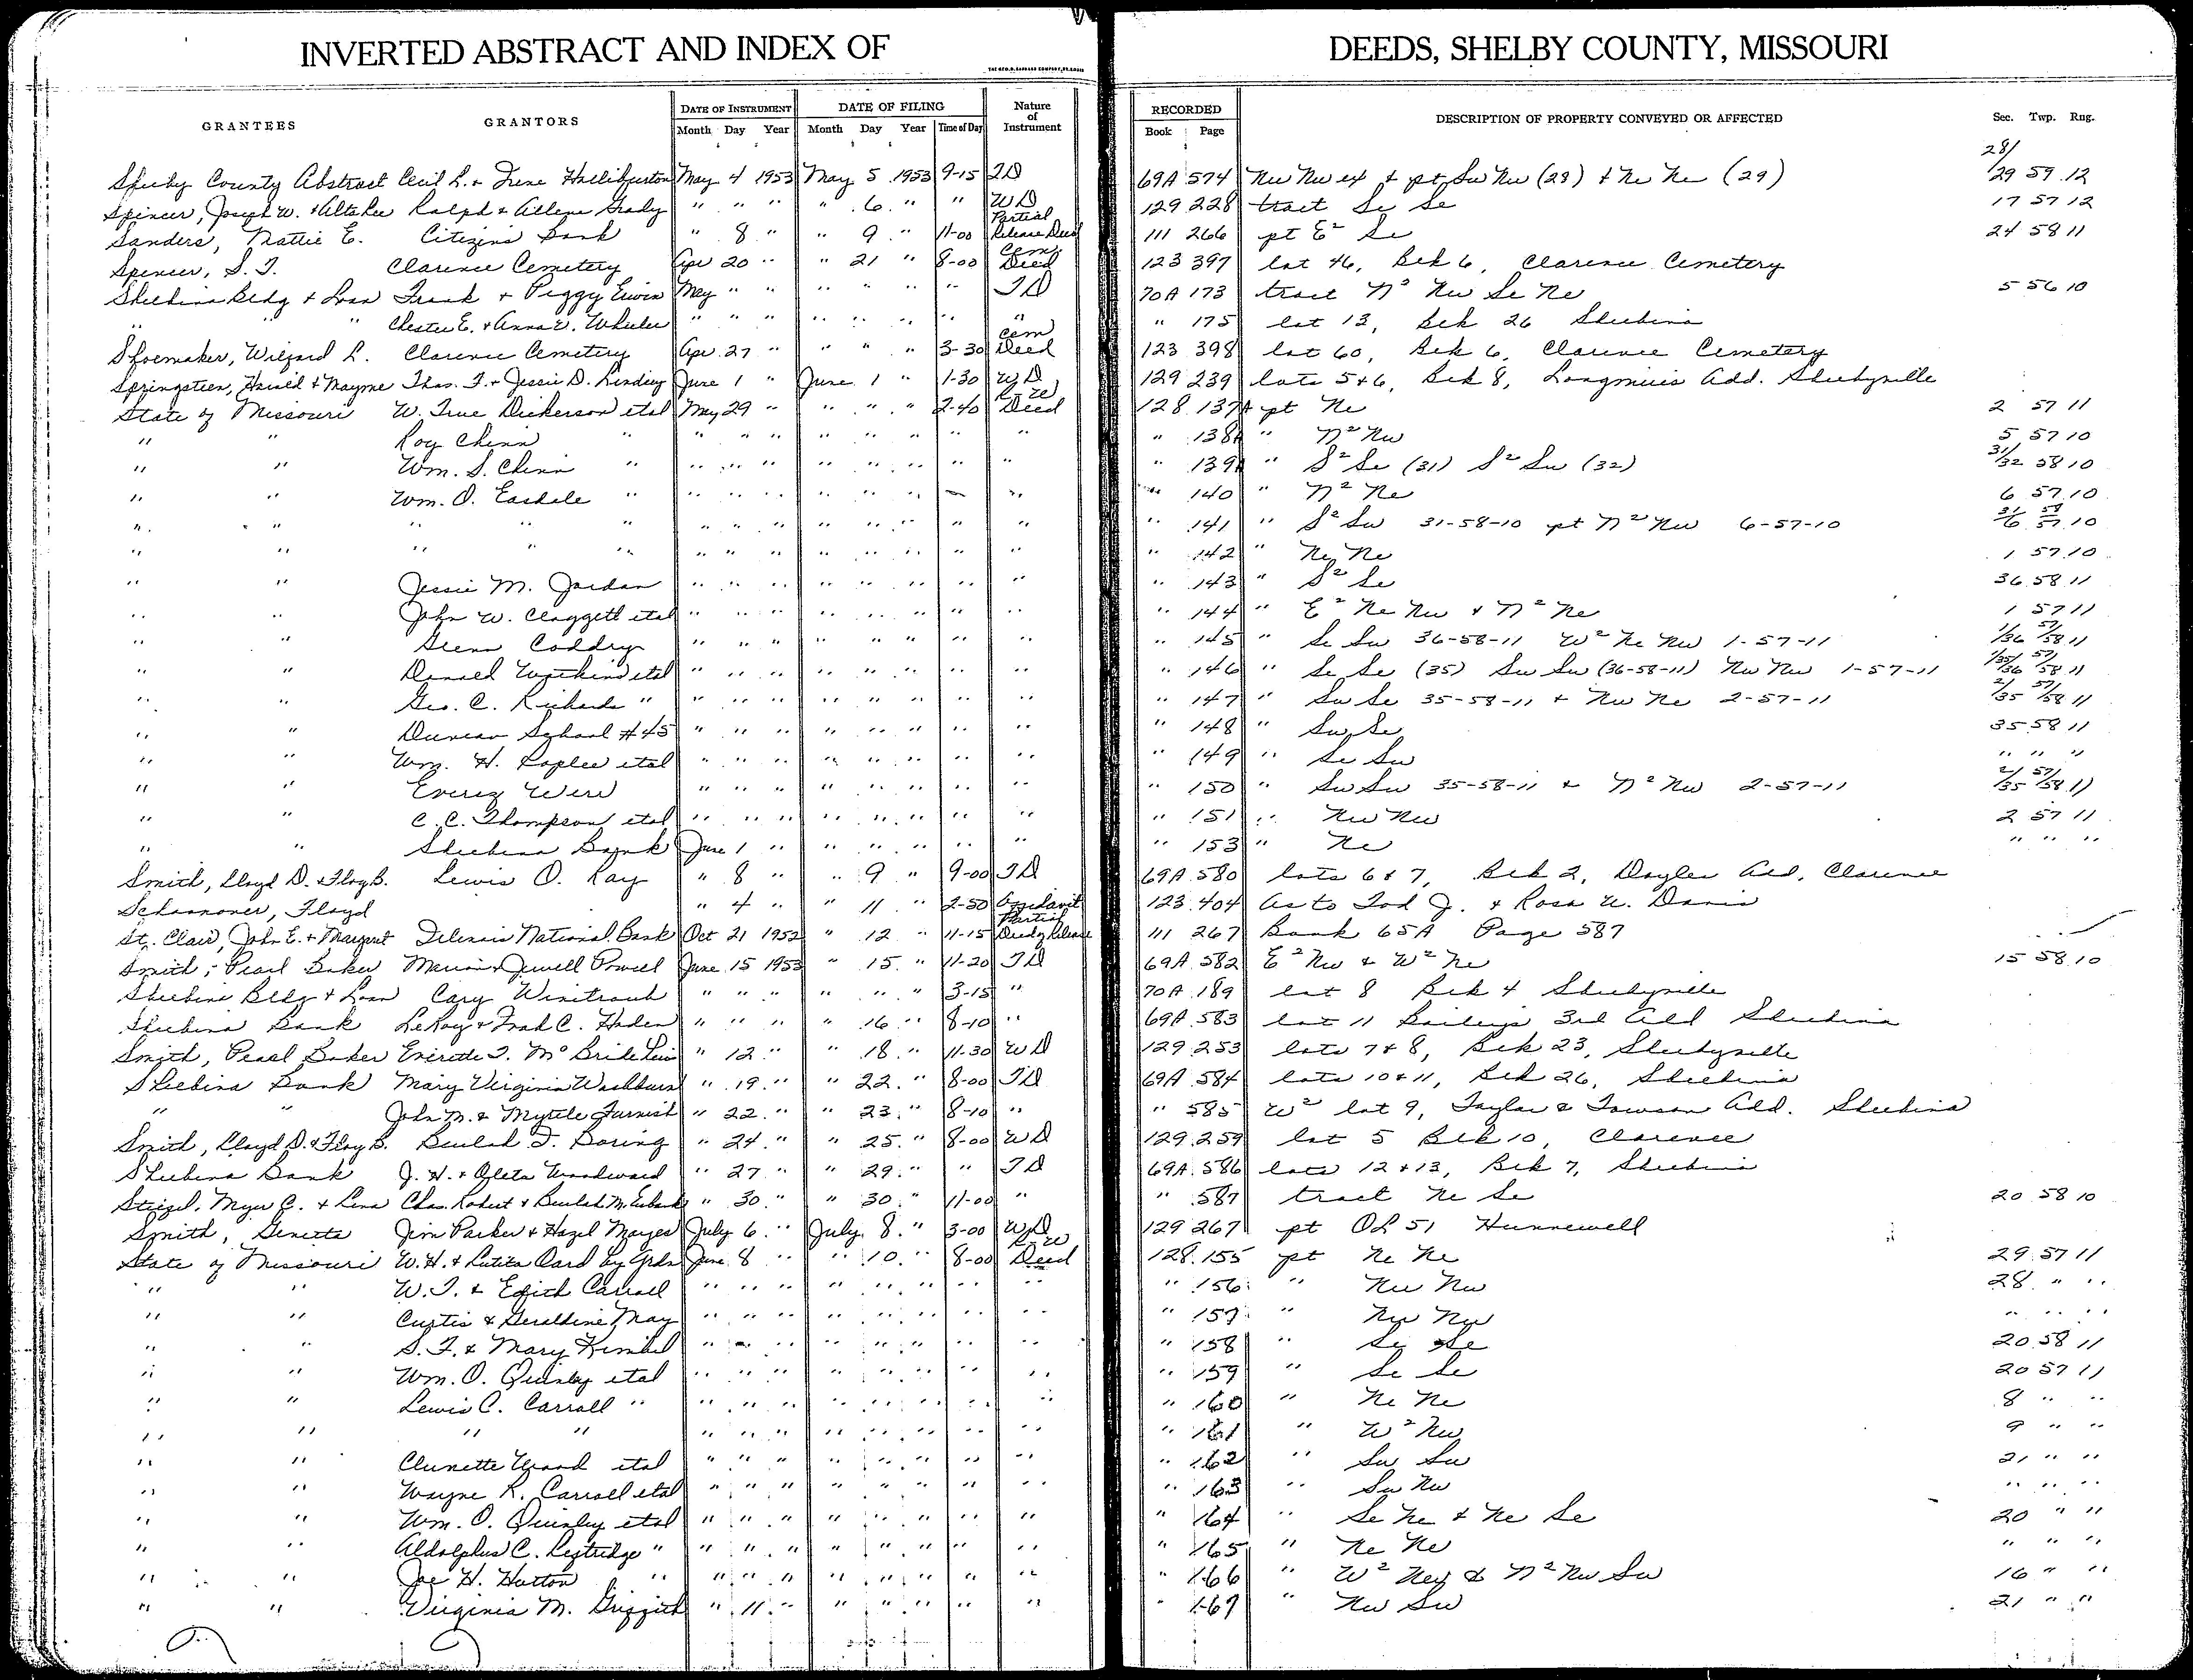 INVERTED ABSTRACT AND INDEX OF DEEDS, SHELBY COUNTY, MISSOURI
GRANTEES GRANTORS DATE OF INSTRUMENT DATE OF FILING Nature of Instrument RECORDED DESCRIPTION OF PROPERTY CONVEYED OR AFFECTED Sec. Twp. Rng.
Month Day Year Month Day Year Time of Day Book Page
Shelby County Abstract Cecil L. & Irene Halliburton May 4 1953 May 5 1953 9-15 TD 69A 574 Nw Nw ex & pt Sw Nw (28) & Ne Ne (29) 28/29 59 12
Spencer, Joseph W. & Alta Lee Ralph & Allene Grady " " " " 6 " " WD 129 228 tract Se Se 17 57 12
Sanders, Mattie E. Citizens Bank " 8 " " 9 " 11-00 Partial Release Deed 111 266 pt E² Se 24 58 11
Spencer, S. T. Clarence Cemetery Apr 20 " " 21 " 8-00 Cem. Deed 123 397 lot 46, Blk 6, Clarence Cemetery
Shelbina Bldg & Loan Frank & Peggy Erwin May " " " " " " TD 70A 173 tract N² Nw Se Ne 5 56 10
" " " Chester E. & Anna E. Wheeler " " " " " " " " " 175 lot 13, Blk 26 Shelbina
Shoemaker, Wilford L. Clarence Cemetery Apr 27 " " " " 3-30 Cem Deed 123 398 lot 60, Blk 6, Clarence Cemetery
Springsteen, Harold & Mayme Thos. F. & Jessie D. Lindley June 1 " June 1 " 1-30 WD 129 239 lots 5 & 6, Blk 8, Longmires Add. Shelbyville
State of Missouri W. True Dickerson etal May 29 " " " " 2-40 R-W Deed 128 137A pt Ne 2 57 11
" " Roy Chinn " " " " " " " " " " 138A " N² Nw 5 57 10
" " Wm. S. Chinn " " " " " " " " " " 139A " S² Se (31) S² Sw (32) 31/32 58 10
" " Wm. O. Easdale " " " " " " " " " " 140 " N² Ne 6 57 10
" " " " " " " " " " " " " " 141 " S² Sw 31-58-10 pt N² Nw 6-57-10 31/6 58/57 10
" " " " " " " " " " " " " " 142 " Ne Ne 1 57 10
" " Jessie M. Jordan " " " " " " " " " 143 " S² Se 36 58 11
" " John W. Claggett etal " " " " " " " " " 144 " E² Ne Nw & N² Ne 1 57 11
" " Glenn Coddry " " " " " " " " " 145 " Se Sw 36-58-11 W² Ne Nw 1-57-11 1/36 57/58 11
" " Donald Watkins etal " " " " " " " " " 146 " Se Se (35) Sw Sw (36-58-11) Nw Nw 1-57-11 1/35/36 57/58 11
" " Geo. C. Richards " " " " " " " " " " 147 " Sw Se 35-58-11 & Nw Ne 2-57-11 2/35 57/58 11
" " Duncan School #45 " " " " " " " " " 148 " Sw Se 35 58 11
" " Wm. H. Raplee etal " " " " " " " " " 149 " Se Sw " " "
" " " " " " " " " " " 150 " Sw Sw 35-58-11 & N² Nw 2-57-11 2/35 57/58 11
" " C. C. Thompson etal " " " " " " " " " 151 " Nw Nw 2 57 11
" " Shelbina Bank June 1 " " " " " " " 153 " Ne " " "
Smith, Lloyd D. & Floy B. Lewis O. Ray " 8 " " 9 " 9-00 TD 69A 580 lots 6 & 7, Blk 2, Doyles Add, Clarence
Schoonover, Floyd " 4 " " 11 " 2-50 Affidavit 123 404 As to Tod J. & Rosa U. Davis
St. Clair, John E. & Margaret Illinois National Bank Oct 21 1952 " 12 " 11-15 Partial Deed of Release 111 267 Book 65A Page 587
Smith, Pearl Baker Marion & Jewell Powell June 15 1953 " 15 " 11-20 TD 69A 582 E² Nw & W² Ne 15 58 10
Shelbina Bldg & Loan Cary Winetroub " " " " " " 3-15 " 70A 189 lot 8 Blk 4 Shelbyville
Shelbina Bank LeRoy & Frad C. Haden " " " " 16 " 8-10 " 69A 583 lot 11 Baileys 3rd Add Shelbina
Smith, Pearl Baker Everette T. McBride " 12 " " 18 " 11-30 WD 129 253 lots 7 & 8, Blk 23, Shelbyville
Shelbina Bank Mary Virginia Washburn " 19 " " 22 " 8-00 TD 69A 584 lots 10 & 11, Blk 26, Shelbina
" " John N. & Myrtle Furnish " 22 " " 23 " 8-10 " " 585 W² lot 9, Taylor & Towson Add. Shelbina
Smith, Lloyd D. & Floy B. Beulah F. Doring " 24 " " 25 " 8-00 WD 129 259 lot 5 Blk 10, Clarence
Shelbina Bank J. H. & Ofleta Woodward " 27 " " 29 " " TD 69A 586 lots 12 & 13, Blk 7, Shelbina
Steigel, Myer C. & Lena Chas. Robert & Beulah M. Eubank " 30 " " 30 " 11-00 " " 587 tract Ne Se 20 58 10
Smith, Genette Jim Parker & Hazel Mayes July 6 " July 8 " 3-00 WD 129 267 pt OL 51 Hunnewell
State of Missouri W. H. & Lutitia Oard by Grdn June 8 " " 10 " 8-00 R-W Deed 128 155 pt Ne Ne 29 57 11
" " W. T. & Edith Carroll " " " " " " " " " 156 " Nw Nw 28 " "
" " Curtis & Geraldine May " " " " " " " " " 157 " Nw Nw " " "
" " S. F. & Mary Kimbel " " " " " " " " " 158 " Se Se 20 58 11
" " Wm. O. Quinley etal " " " " " " " " " 159 " Se Se 20 57 11
" " Lewis C. Carroll " " " " " " " " " " 160 " Ne Ne 8 " "
" " " " " " " " " " " " " 161 " W² Nw 9 " "
" " Clunette Wood etal " " " " " " " " " 162 " Sw Sw 21 " "
" " Wayne R. Carroll etal " " " " " " " " " 163 " Sw Nw " " "
" " Wm. O. Quinley etal " " " " " " " " " 164 " Se Ne & Ne Se 20 " "
" " Aldolphus C. " " " " " " " " " " 165 " Ne Ne " " "
" " Joe H. Hutton " " " " " " " " " " 166 " W² & N² Nw Sw 16 " "
" " Virginia M. Griffith " 11 " " " " " " " 167 " Nw Sw 21 " "